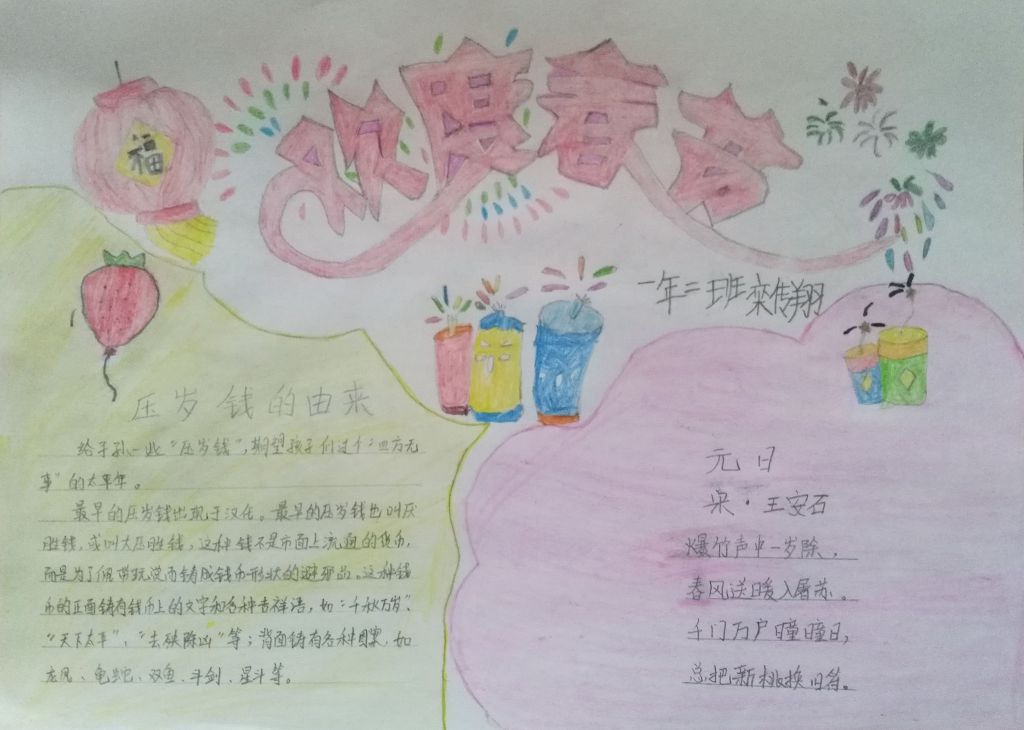 欢度春节
福
一年二班栾传翔
压岁钱的由来
给子孙一些“压岁钱”，期望孩子们过个“四方无
事”的太平年。
最早的压岁钱出现于汉代。最早的压岁钱也叫厌
胜钱，或叫大压胜钱，这种钱不是市面上流通的货币，
而是为了佩带玩赏而铸成钱币形状的避邪品。这种钱
币的正面铸有钱币上的文字和各种吉祥语，如“千秋万岁”、
“天下太平”、“去殃除凶”等；背面铸有各种图案，如
龙凤、龟蛇、双鱼、斗剑、星斗等。
元日
宋·王安石
爆竹声中一岁除，
春风送暖入屠苏。
千门万户曈曈日，
总把新桃换旧符。